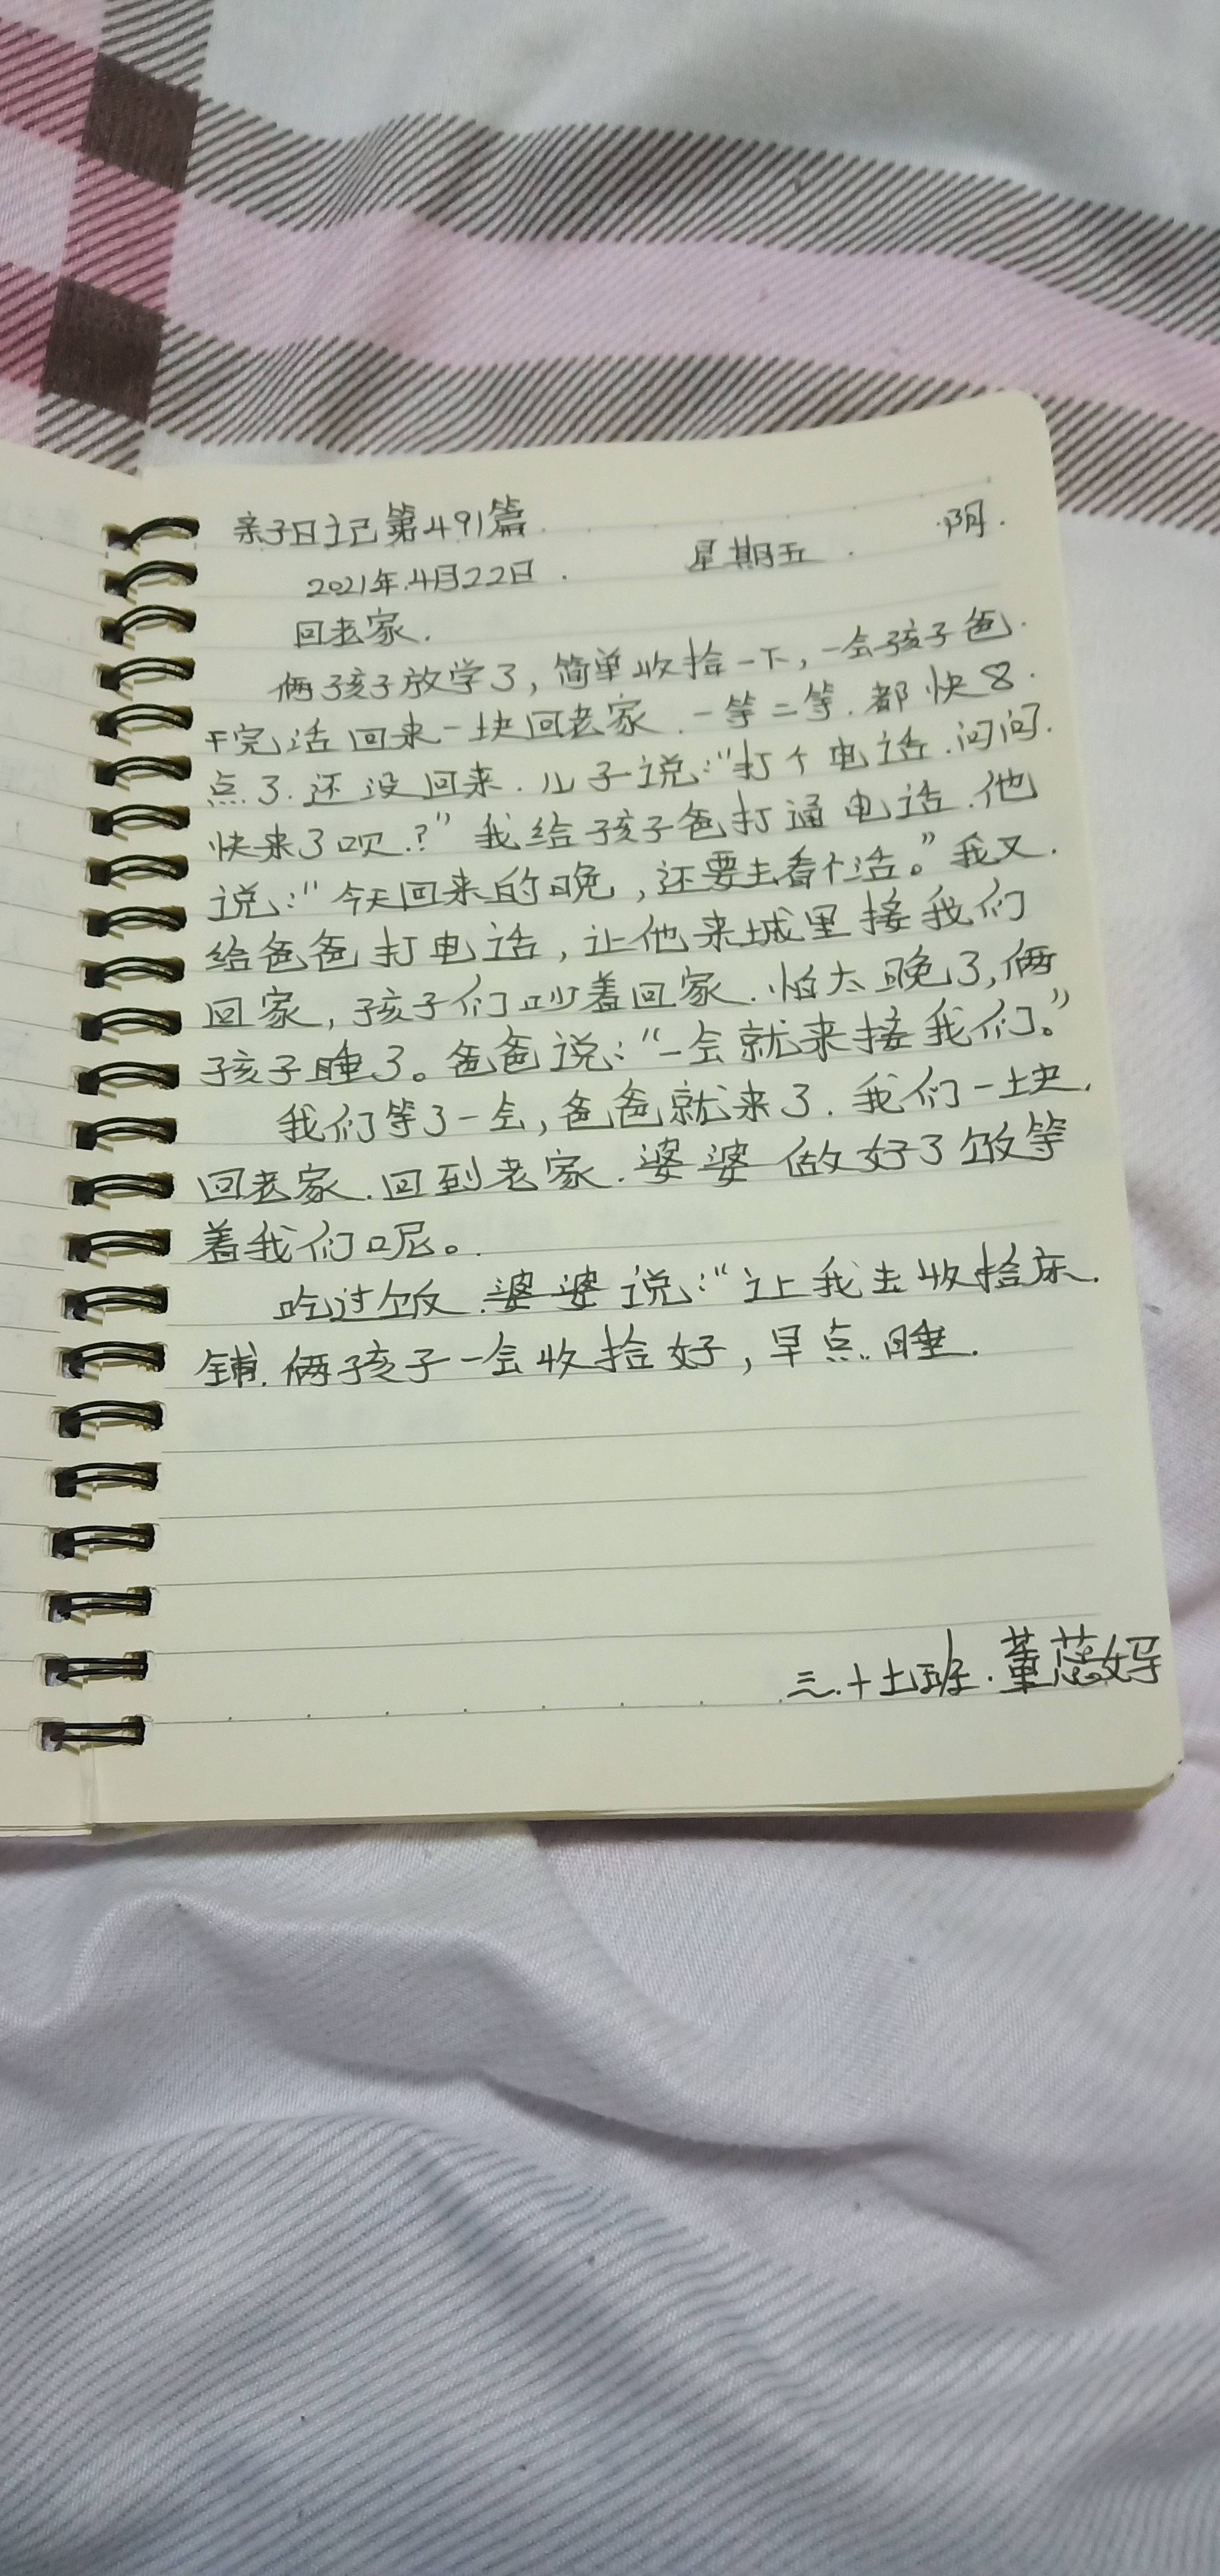 亲子日记第491篇.
2021年.4月22日. 星期五. 阴.
回老家.
俩孩子放学了,简单收拾一下,一会孩子爸.
干完活回来一块回老家.一等二等.都快8.
点了.还没回来.儿子说:“打个电话.问问.
快来了呗.?”我给孩子爸打通电话.他
说:“今天回来的晚,还要去看个活。”我又.
给爸爸打电话,让他来城里接我们
回家,孩子们吵着回家.怕太晚了,俩
孩子睡了。爸爸说:“一会就来接我们。”
我们等了一会,爸爸就来了.我们一块.
回老家.回到老家.婆婆做好了饭等
着我们呢。.
吃过饭.婆婆说:“让我去收拾床.
铺.俩孩子一会收拾好,早点.睡.
三.十七班.董蕊妤